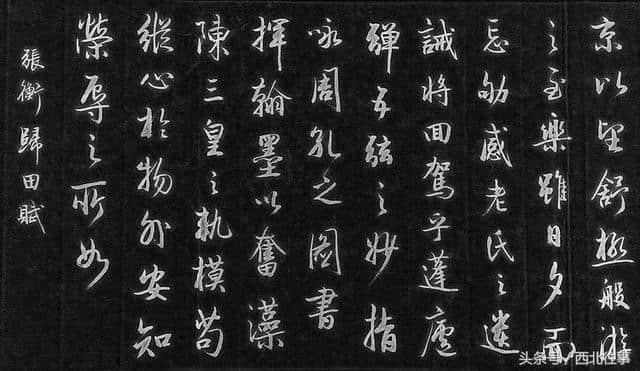 京以望舒極般游
之至樂雖日夕而
忘劬感老氏之遺
誡將回駕乎蓬廬
彈五弦之妙指
咏周孔之圖書
揮翰墨以奮藻
陳三皇之軌模苟
縱心於物外安知
榮辱之所如
張衡歸田賦
头条号 / 西北往事